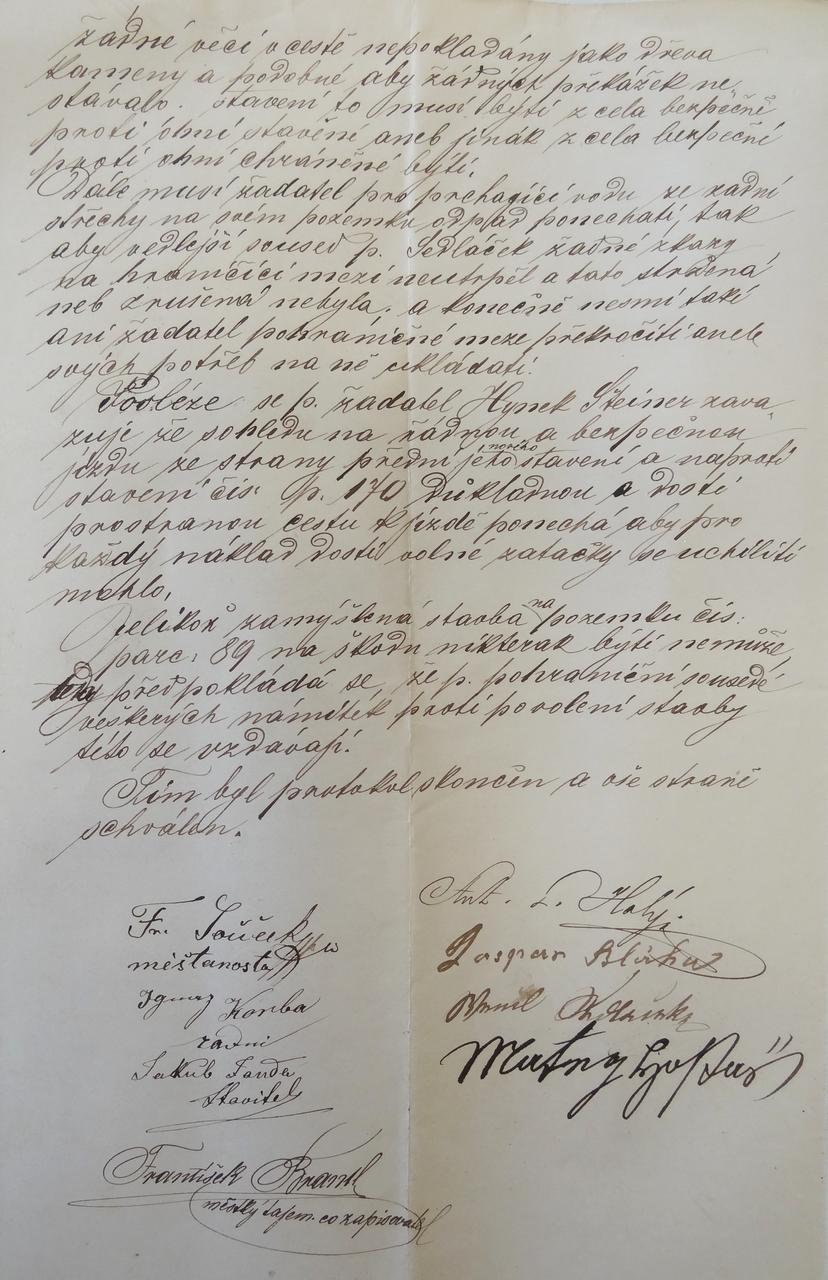 žádné věci v cestě nepokládány jako dřeva
kameny a podobné aby žádných překážek ne„
stávalo. Stavení to musí býti z cela bezpěčně
proti ohni stavění aneb jinák z cela bezpečni
proti ohni chráněné býti.
Dále musí žadatel pro prchagici vodu ze zadni
střechy na svém pozemku odpad ponechati, tak
aby vedlejší soused p. Sedláček žadné zkazy
na hraničíci mezi neutrpěl a tato stržená
neb zrušená nebyla. a konečně nesmí také
ani zadatel pohraničné meze překročiti aneb
svých potřeb na ně ukládati.
Posléze se p. žadatel Hynek Steiner zava„
zuje že sohledu na řádnou a bezpečnou
jízdu ze strany přední jeho nového stavení a naproti
stavení čís. p. 170 důkladnou a dosti
prostranou cestu k jízdě ponechá aby pro
každý náklad dosti volné zatáčky se uchiliti
mohlo.
Jelikož zamýšlená stavba na pozemku čis.
parc. 89 na škodu nikterak býti nemůže,
tedy předpokládá se, že p. pohraniční sousedé
veškerých námitek proti povolení stavby
této se vzdávají.
Tím byl protokol skončen a vše straně
schválen.
Fr. Souček
měšťanosta
Ignaz Korba
radní
Jakub Landa
Stavitel
František Brantl
městký tajem. co zapisovatel
Ant. L. Holý.